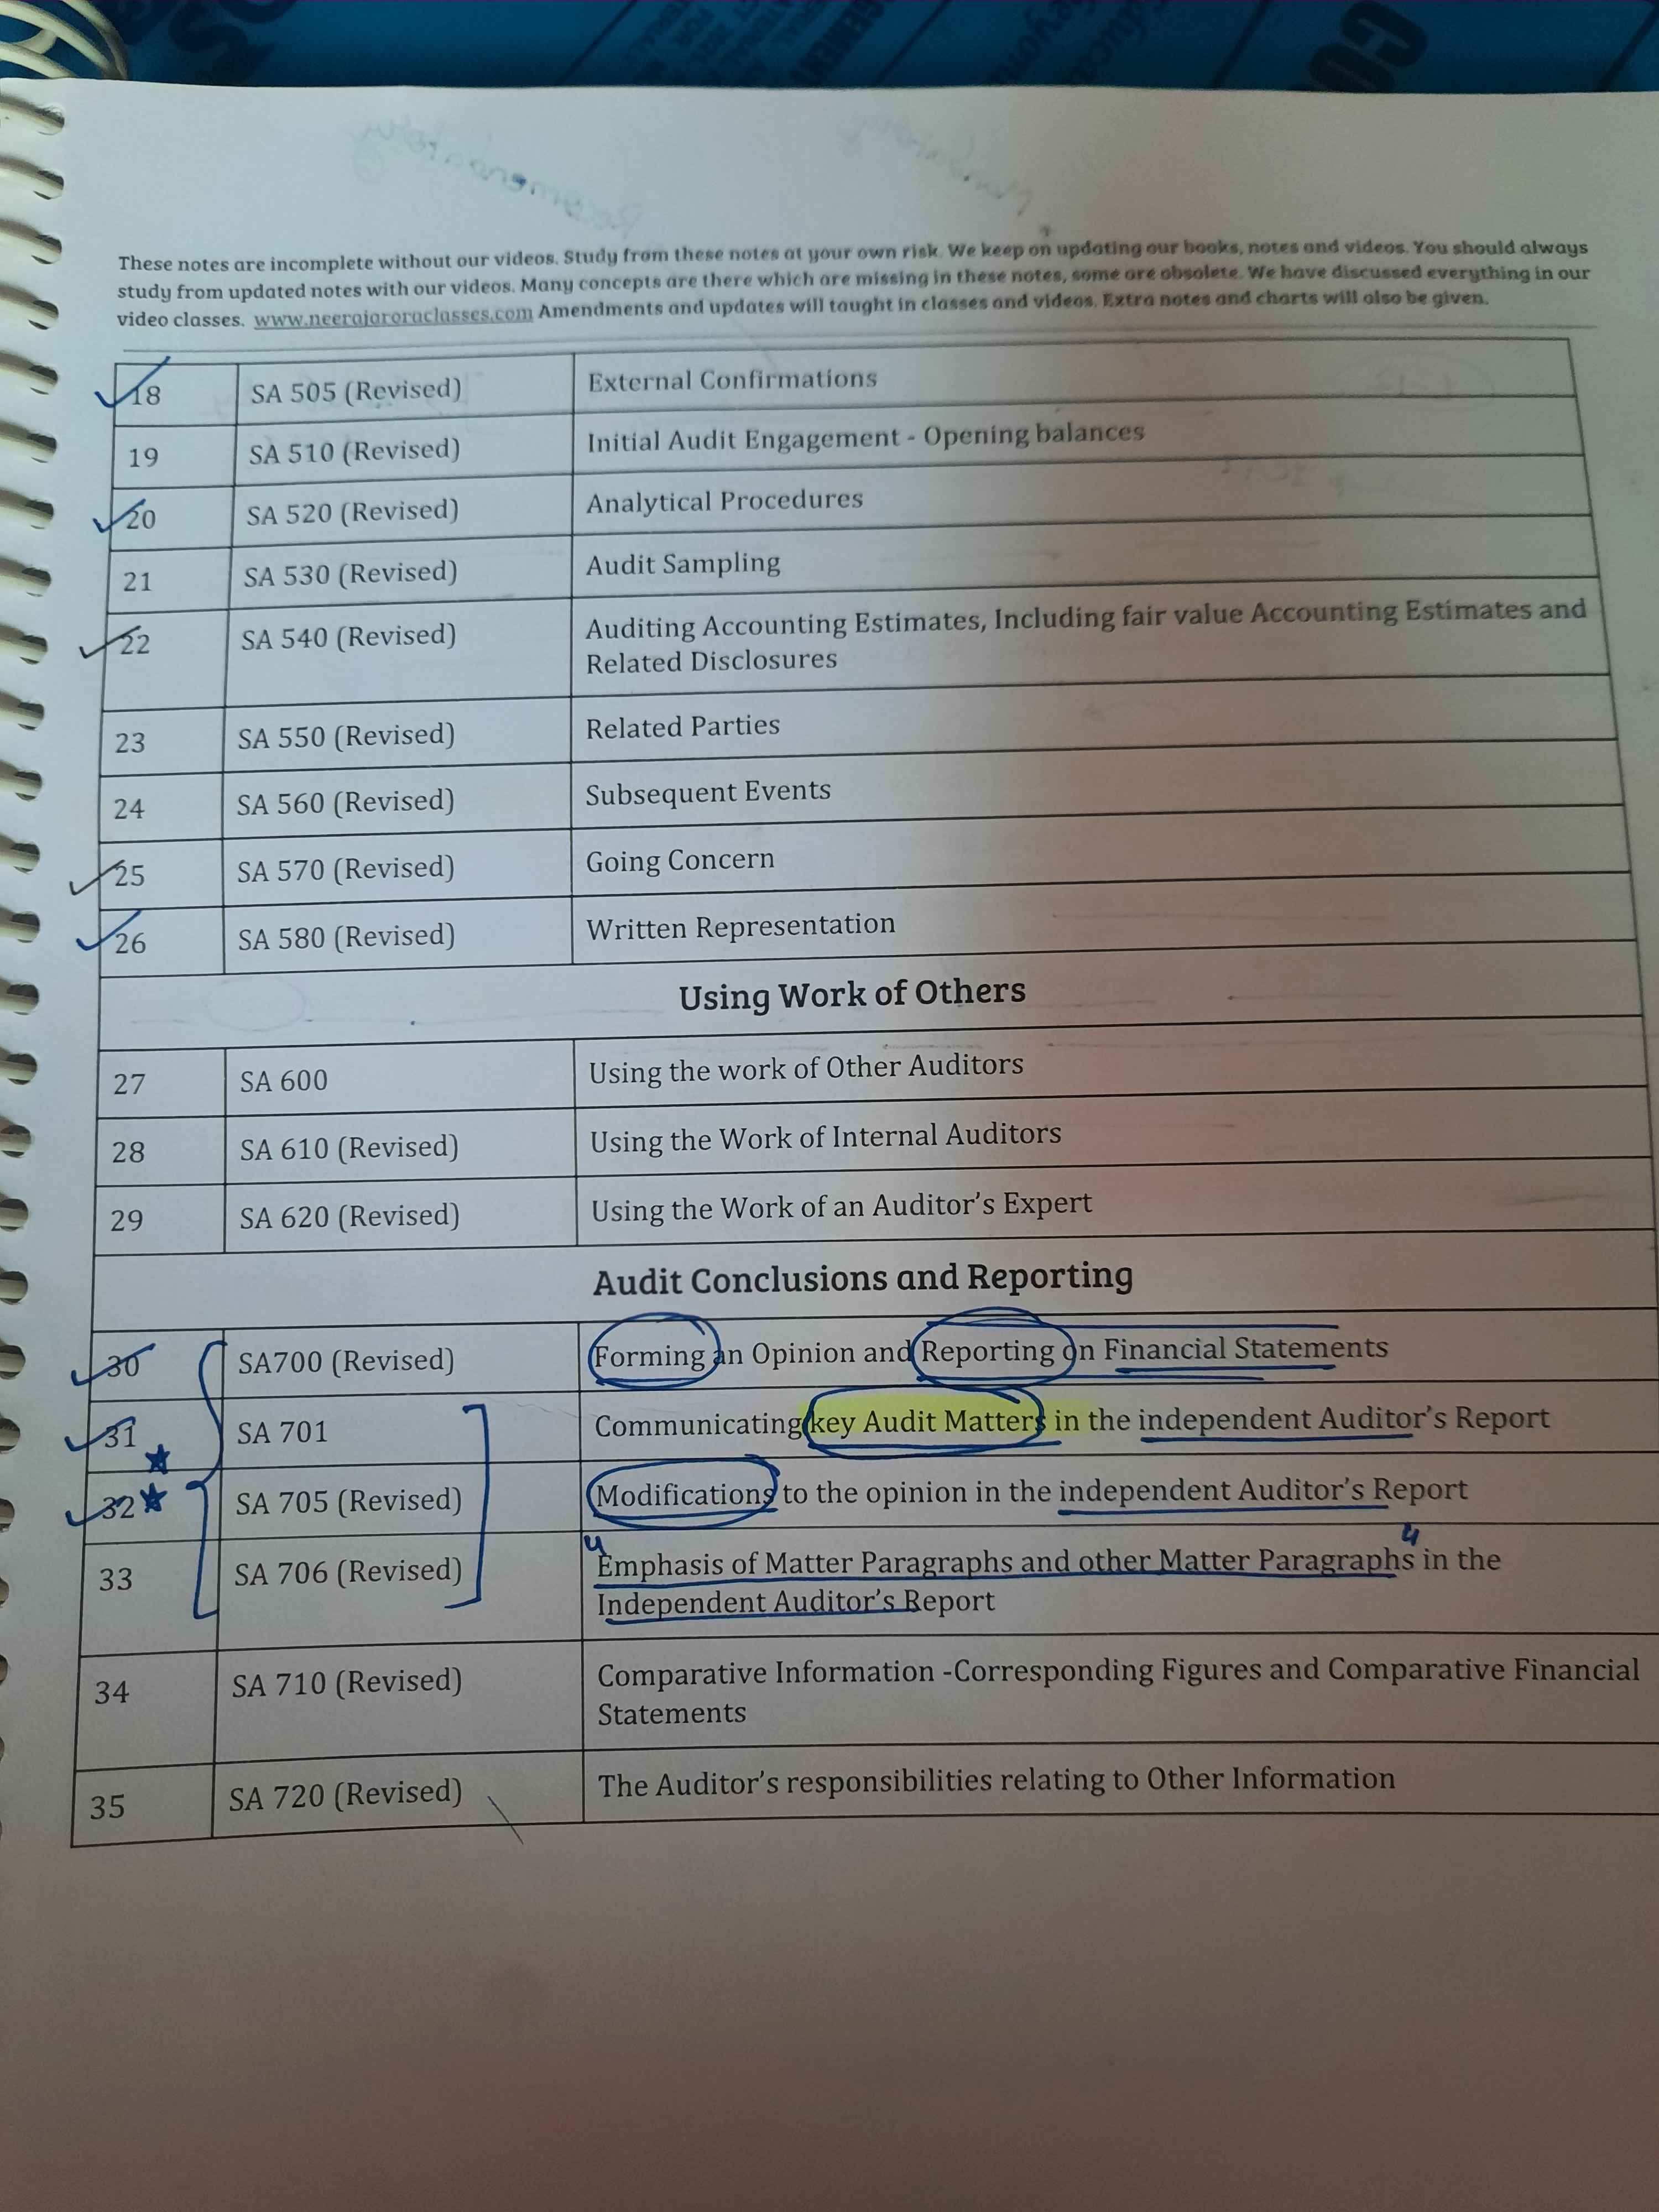 These notes are incomplete without our videos. Study from these notes at your own risk. We keep on updating our books, notes and videos. You should always
study from updated notes with our videos. Many concepts are there which are missing in these notes, some are obsolete. We have discussed everything in our
video classes. www.neerajaroraclasses.com Amendments and updates will taught in classes and videos. Extra notes and charts will also be given.
18 SA 505 (Revised) External Confirmations
19 SA 510 (Revised) Initial Audit Engagement - Opening balances
20 SA 520 (Revised) Analytical Procedures
21 SA 530 (Revised) Audit Sampling
22 SA 540 (Revised) Auditing Accounting Estimates, Including fair value Accounting Estimates and
Related Disclosures
23 SA 550 (Revised) Related Parties
24 SA 560 (Revised) Subsequent Events
25 SA 570 (Revised) Going Concern
26 SA 580 (Revised) Written Representation
Using Work of Others
27 SA 600 Using the work of Other Auditors
28 SA 610 (Revised) Using the Work of Internal Auditors
29 SA 620 (Revised) Using the Work of an Auditor's Expert
Audit Conclusions and Reporting
30 SA700 (Revised) Forming an Opinion and Reporting on Financial Statements
31 SA 701 Communicating key Audit Matters in the independent Auditor's Report
32 SA 705 (Revised) Modifications to the opinion in the independent Auditor's Report
33 SA 706 (Revised) Emphasis of Matter Paragraphs and other Matter Paragraphs in the
Independent Auditor's Report
34 SA 710 (Revised) Comparative Information -Corresponding Figures and Comparative Financial
Statements
35 SA 720 (Revised) The Auditor's responsibilities relating to Other Information